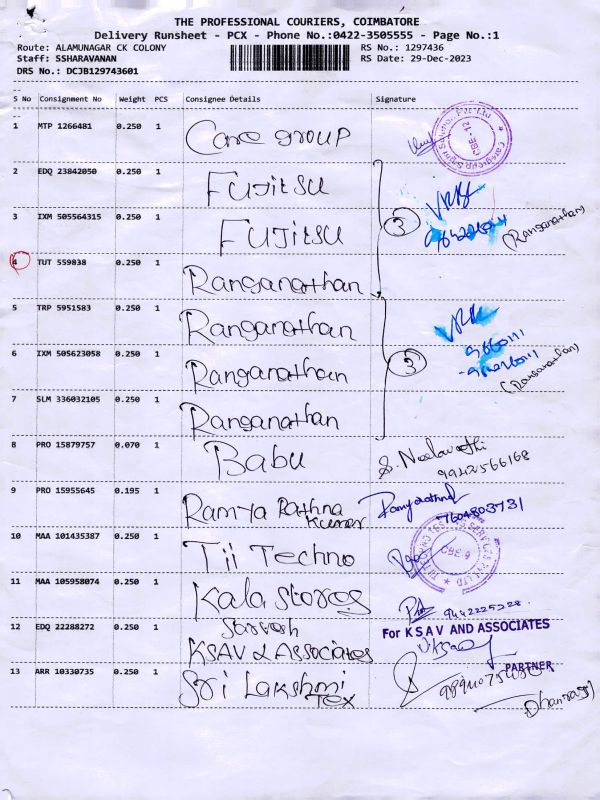 THE PROFESSIONAL COURIERS, COIMBATORE
Delivery Runsheet - PCX - Phone No.:0422-3505555 - Page No.:1
Route: ALAMUNAGAR CK COLONY RS No.: 1297436
Staff: SSHARAVANAN RS Date: 29-Dec-2023
DRS No.: DCJB129743601
S No Consignment No Weight PCS Consignee Details Signature
1 MTP 1266481 0.250 1 Care group
2 EDQ 23842050 0.250 1 FUJitsu
3 IXM 505564315 0.250 1 FUJitsu
3 (Ranganathan)
4 TUT 559838 0.250 1 Ranganathan
5 TRP 5951583 0.250 1 Ranganathan
6 IXM 505623058 0.250 1 Ranganathan
3 (Ranganathan)
7 SLM 336032105 0.250 1 Ranganathan
8 PRO 15879757 0.070 1 Babu S.
9942566168
9 PRO 15955645 0.195 1 Ramya Rathna Kumar
7604803731
10 MAA 101435387 0.250 1 Tii Techno
11 MAA 105958074 0.250 1 Kala Stores
9442225228
12 EDQ 22288272 0.250 1 KSAV & Associates
For K S A V AND ASSOCIATES
PARTNER
13 ARR 10330735 0.250 1 Sri Lakshmi Tex
Dhanraj